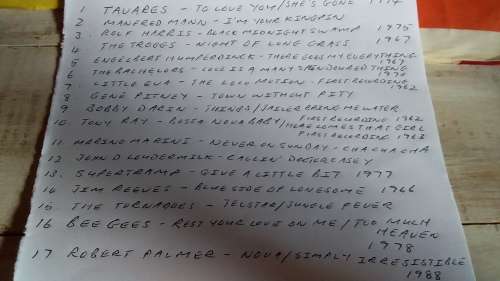 1 TAVARES - TO LOVE YOU / SHE'S GONE 1974
2 MANFRED MANN - I'M YOUR KINGPIN
3 ROLF HARRIS - BLACK MIDNIGHT SWAMP 1975
4 THE TROGGS - NIGHT OF LONG GRASS 1967
5 ENGELBERT HUMPERDINCK - THERE GOES MY EVERYTHING
1967
6 THE BACHELORS - LOVE IS A MANY SPLENDOURED THING
7 LITTLE EVA - THE LOCO MOTION - FIRST RECORDING
1962
8 GENE PITNEY - TOWN WITHOUT PITY
9 BOBBY DARIN - THINGS / JAILER BRING ME WATER
FIRST RECORDING 1962
10 TONY RAY - BOSSA NOVA BABY / HERE COMES THAT GIRL
FIRST RECORDING 1963
11 MARINO MARINI - NEVER ON SUNDAY - CHA CHA CHA
12 JOHN D LOUDERMILK - CALLIN DOCTOR CASEY
13. SUPERTRAMP - GIVE A LITTLE BIT 1977
14 JIM REEVES - BLUE SIDE OF LONESOME 1966
15 THE TORNADOES - TELSTAR / JUNGLE FEVER
16 BEE GEES - REST YOUR LOVE ON ME / TOO MUCH
HEAVEN
1978
17 ROBERT PALMER - NOVA / SIMPLY IRRESISTIBLE
1988